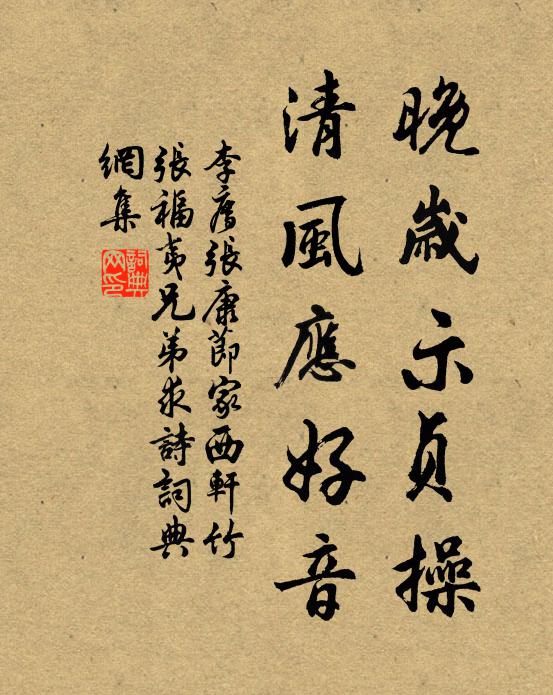 晚歲示貞操
清風應好音
李廌張康節家西軒竹
張福夷兄弟求詩詞典
網集
詞典網印